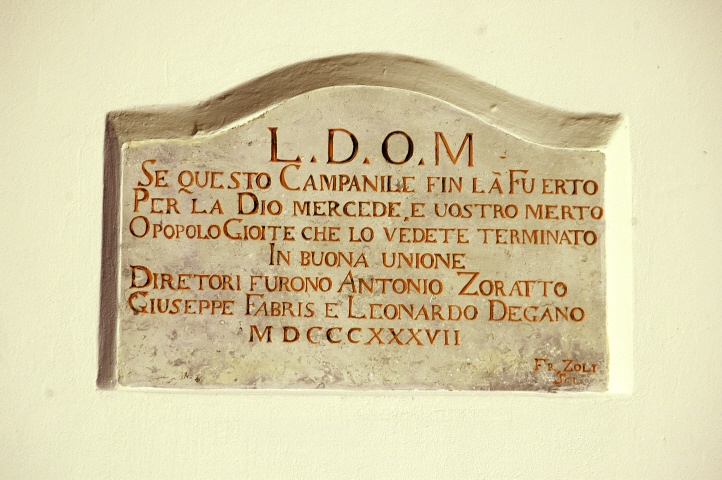 L.D.O.M
SE QUESTO CAMPANILE FIN LÀ FU ERTO
PER LA DIO MERCEDE, E UOSTRO MERTO
O POPOLO GIOITE CHE LO VEDETE TERMINATO
IN BUONA UNIONE
DIRETORI FURONO ANTONIO ZORATTO
GIUSEPPE FABRIS E LEONARDO DEGANO
MDCCCXXXVII
FR. ZOLI